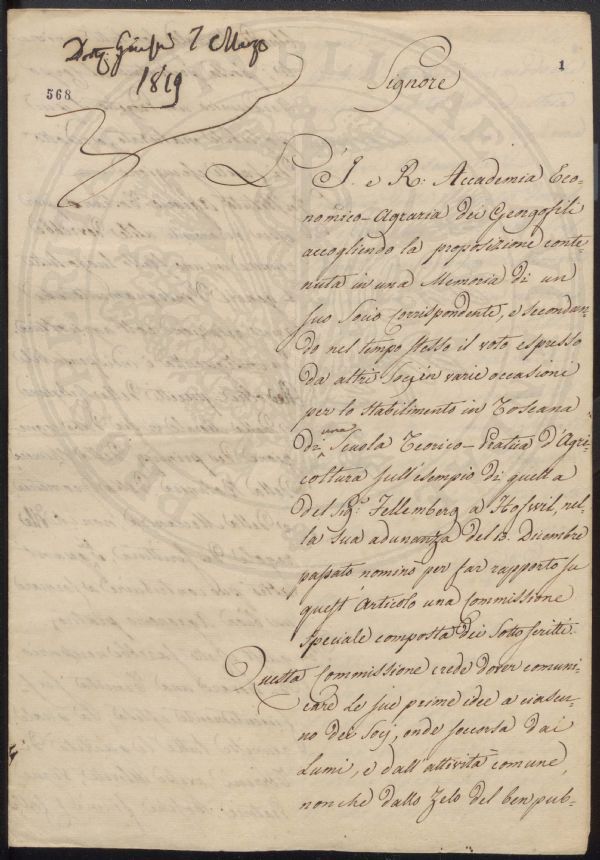 7 Marzo
1819
568
1
Signore
L' I. e R. Accademia Eco-
nomico-Agraria dei Georgofili
accogliendo la proposizione conte-
nuta in una Memoria di un
suo Socio Corrispondente, e secondan-
do nel tempo stesso il voto espresso
da altri Socj in varie occasione
per lo stabilimento in Toscana
di una Scuola Teorico-Pratica d'Agri-
coltura sull'esempio di quella
del Sig.r Fellemberg a Hofwil, nel-
la sua adunanza del 13. Dicembre
passato nominò per far rapporto su
quest'Articolo una Commissione
speciale composta dei Sottoscritti.
Questa Commissione crede dover comuni-
care le sue prime idee a ciascu-
no dei Socj, onde soccorsa dai
Lumi, e dall'attività comune,
nonche dallo Zelo del ben pub-